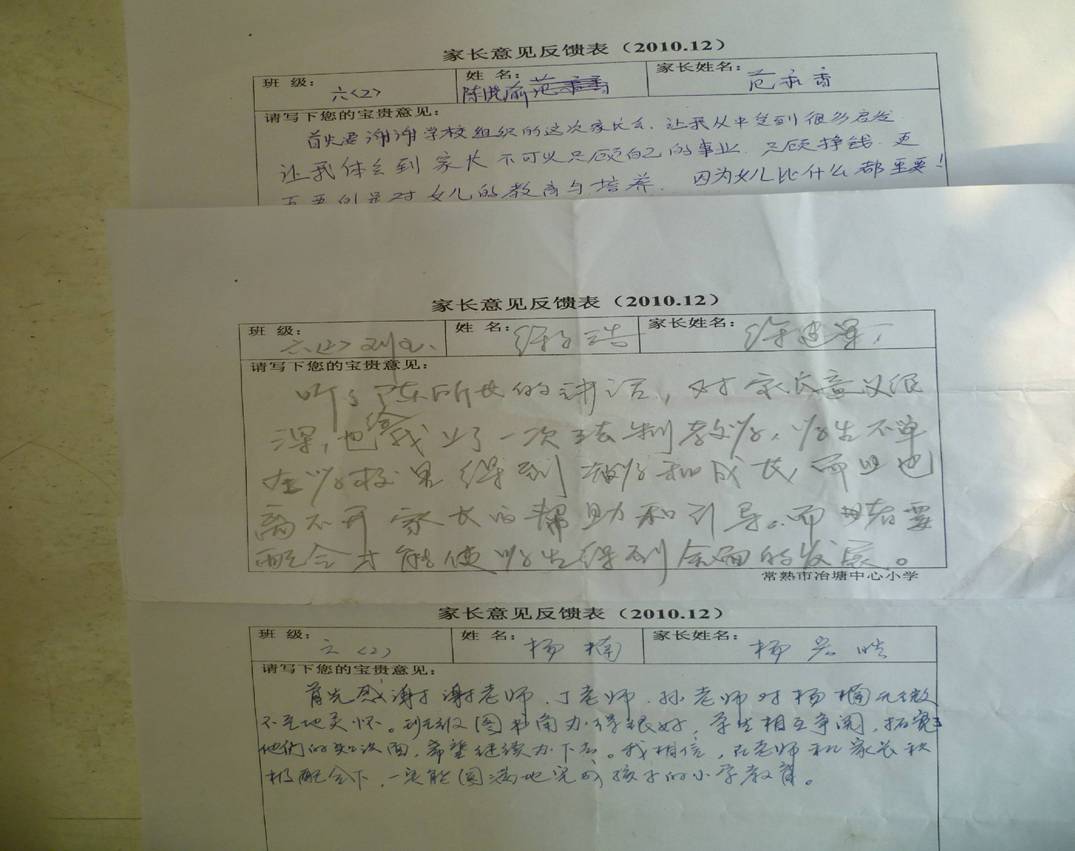 家长意见反馈表（2010.12）
班 级： 六<2> 姓 名： 陈 家长姓名： 范 香
请写下您的宝贵意见：
首先要谢谢学校组织的这次家长会，让我从中受到很多启发
让我体会到家长不可以只顾自己的事业，只顾挣钱，更
重要的是对女儿的教育与培养，因为女儿比什么都重要！
家长意见反馈表（2010.12）
班 级： 六 姓 名： 徐 浩 家长姓名： 徐
请写下您的宝贵意见：
听了陈所长的讲话，对家长意义很
深，也给我上了一次法制教学，学生不单
在学校里得到教学和成长，而且也
离不开家长的帮助和引导。而 需要
配合才能使学生得到全面的发展。
常熟市冶塘中心小学
家长意见反馈表（2010.12）
班 级： 六(2) 姓 名： 杨楠 家长姓名： 杨宏皓
请写下您的宝贵意见：
首先感谢谢老师、丁老师、孙老师对杨楠无微
不至地关怀。班级图书角办得很好，学生相互争阅，拓宽
他们的知识面，希望继续办下去。我相信，在老师和家长积
极配合下，一定能圆满地完成孩子的小学教育。